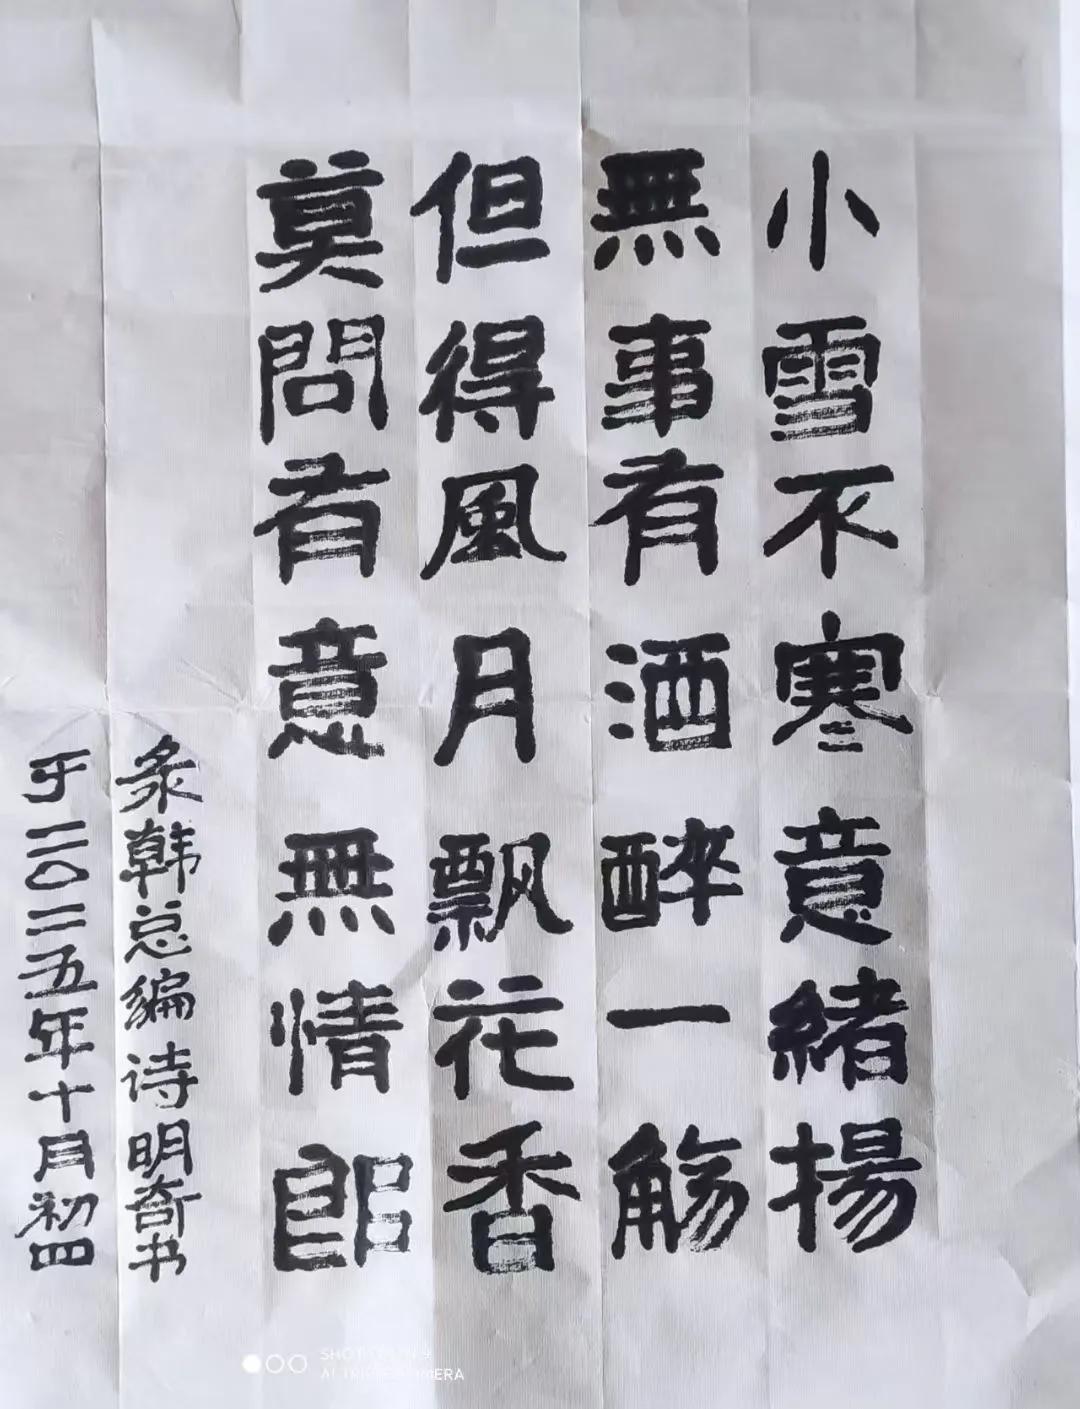 小雪不寒意緒揚
無事有酒醉一觴
但得風月飘花香
莫問有意無情郎
录韩总编诗明奇书
于二〇二五年十月初四
SHOT ON MI 9
AI TRIPLE CAMERA